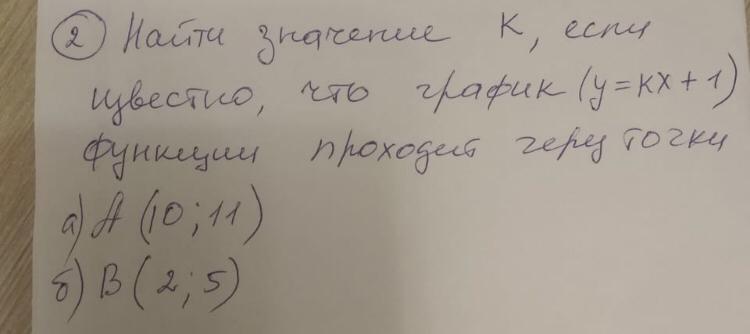 2 Найти значение К, если
известно, что график (y=kx+1)
функции проходит через точки
а) А (10; 11)
б) В (2; 5)